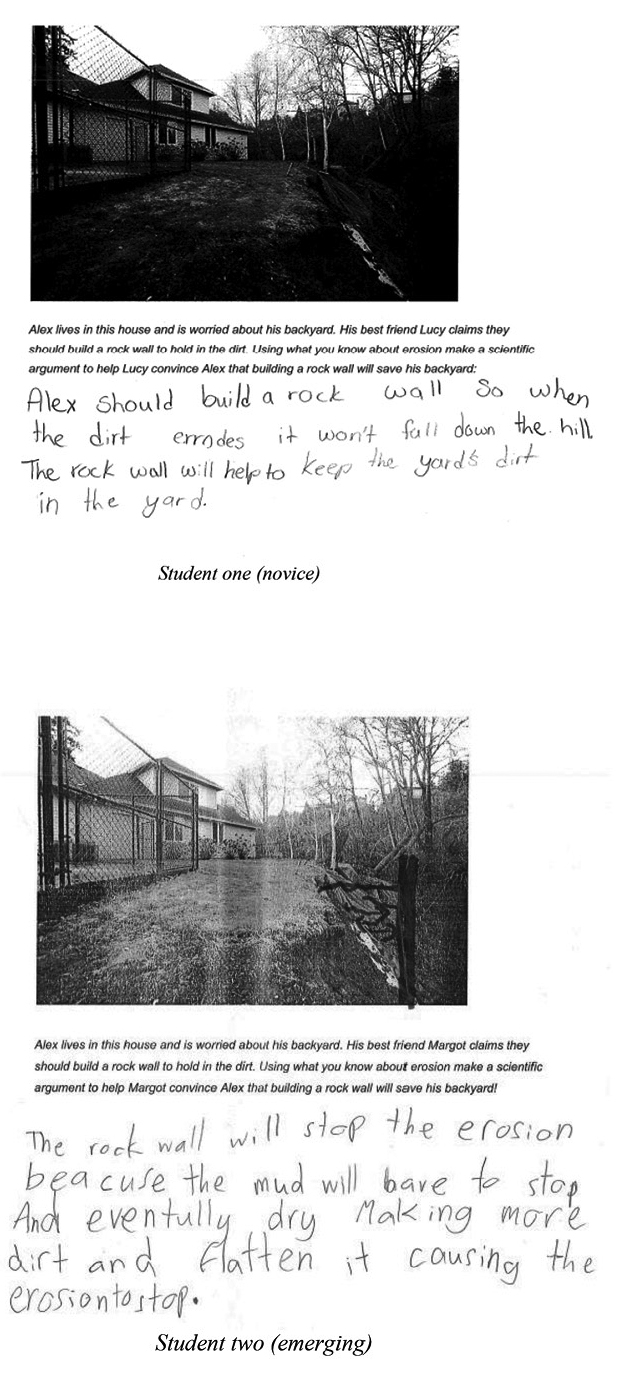 Alex lives in this house and is worried about his backyard. His best friend Lucy claims they
should build a rock wall to hold in the dirt. Using what you know about erosion make a scientific
argument to help Lucy convince Alex that building a rock wall will save his backyard:
Alex should build a rock wall So when
the dirt errodes it won't fall down the hill.
The rock wall will help to keep the yard's dirt
in the yard.
Student one (novice)
Alex lives in this house and is worried about his backyard. His best friend Margot claims they
should build a rock wall to hold in the dirt. Using what you know about erosion make a scientific
argument to help Margot convince Alex that building a rock wall will save his backyard!
The rock wall will stop the erosion
beacuse the mud will have to stop
And eventully dry Making more
dirt and flatten it causing the
erosiontostop.
Student two (emerging)